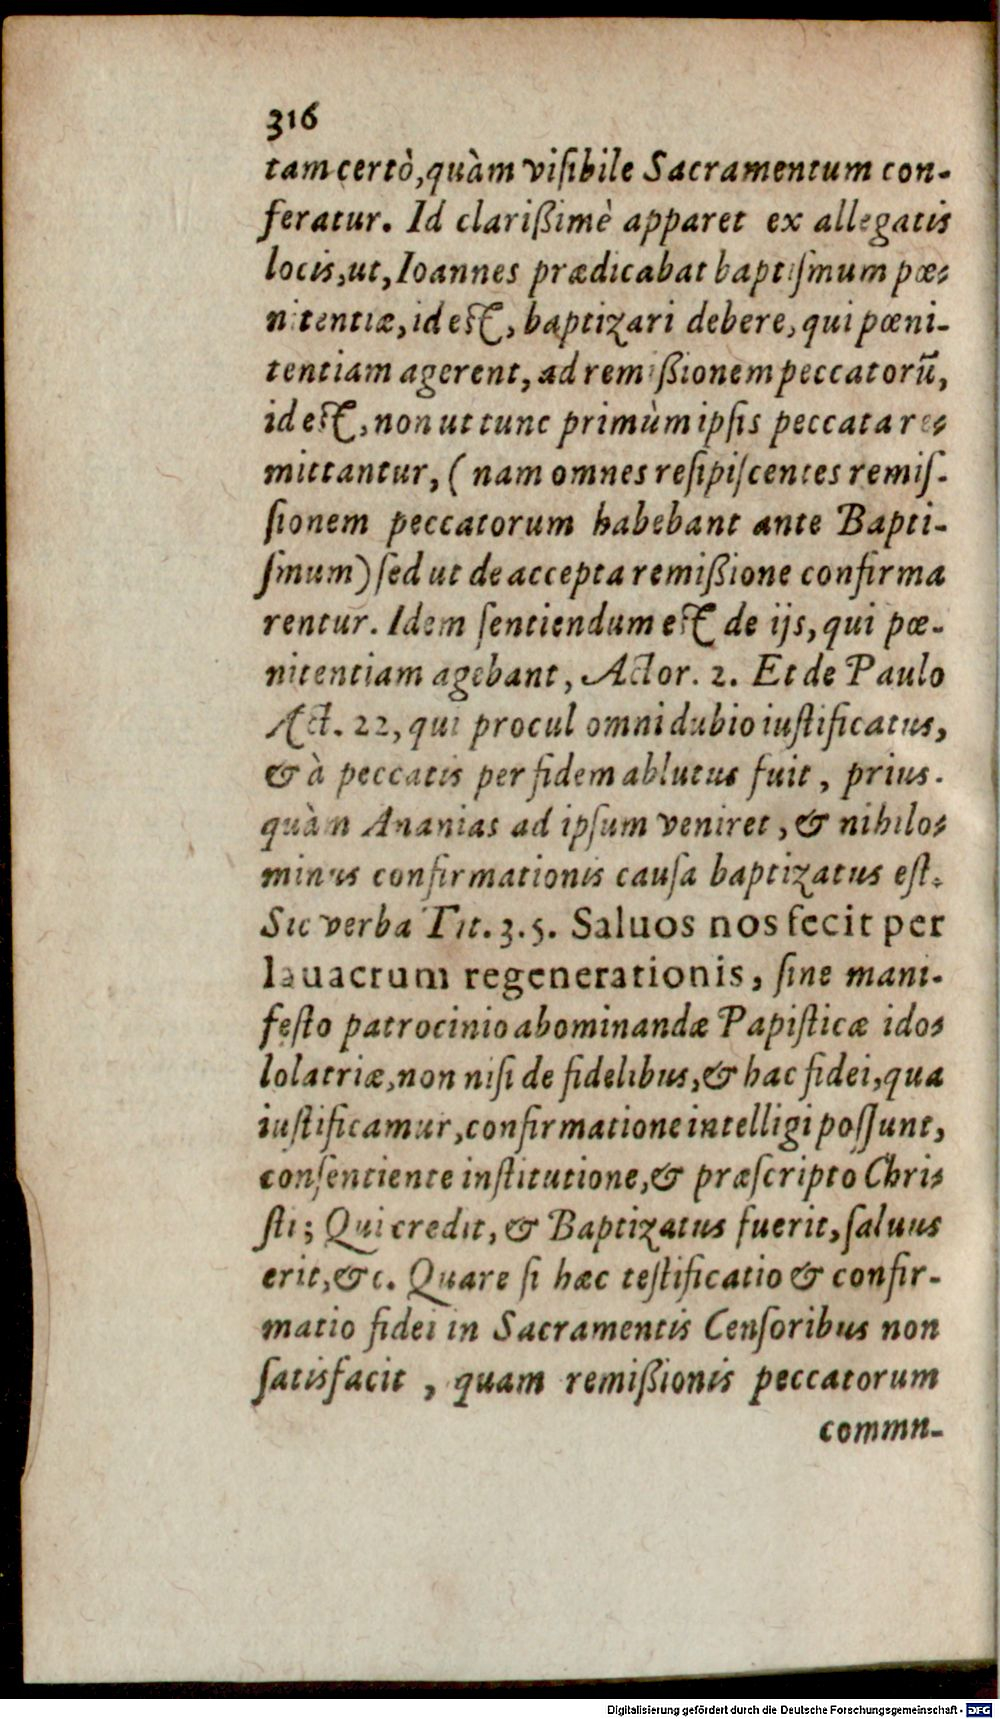 316
tam certò, quàm visibile Sacramentum con-
feratur. Id clarißimè apparet ex allegatis
locis, ut, Ioannes prædicabat baptismum pœ-
nitentiæ, id est, baptizari debere, qui pœni-
tentiam agerent, ad remißionem peccatorũ,
id est, non ut tunc primùm ipsis peccata re-
mittantur, (nam omnes resipiscentes remis-
sionem peccatorum habebant ante Bapti-
smum) sed ut de accepta remißione confirma
rentur. Idem sentiendum est de ijs, qui pœ-
nitentiam agebant, Actor. 2. Et de Paulo
Act. 22, qui procul omni dubio iustificatus,
& à peccatis per fidem ablutus fuit, prius-
quàm Ananias ad ipsum veniret, & nihilo-
minus confirmationis causa baptizatus est.
Sic verba Tit. 3.5. Saluos nos fecit per
lauacrum regenerationis, sine mani-
festo patrocinio abominandæ Papisticæ ido-
lolatriæ, non nisi de fidelibus, & hac fidei, qua
iustificamur, confirmatione intelligi possunt,
consentiente institutione, & præscripto Chri-
sti; Qui credit, & Baptizatus fuerit, saluus
erit, &c. Quare si hæc testificatio & confir-
matio fidei in Sacramentis Censoribus non
satisfacit, quam remißionis peccatorum
commn-
Digitalisierung gefördert durch die Deutsche Forschungsgemeinschaft - DFG